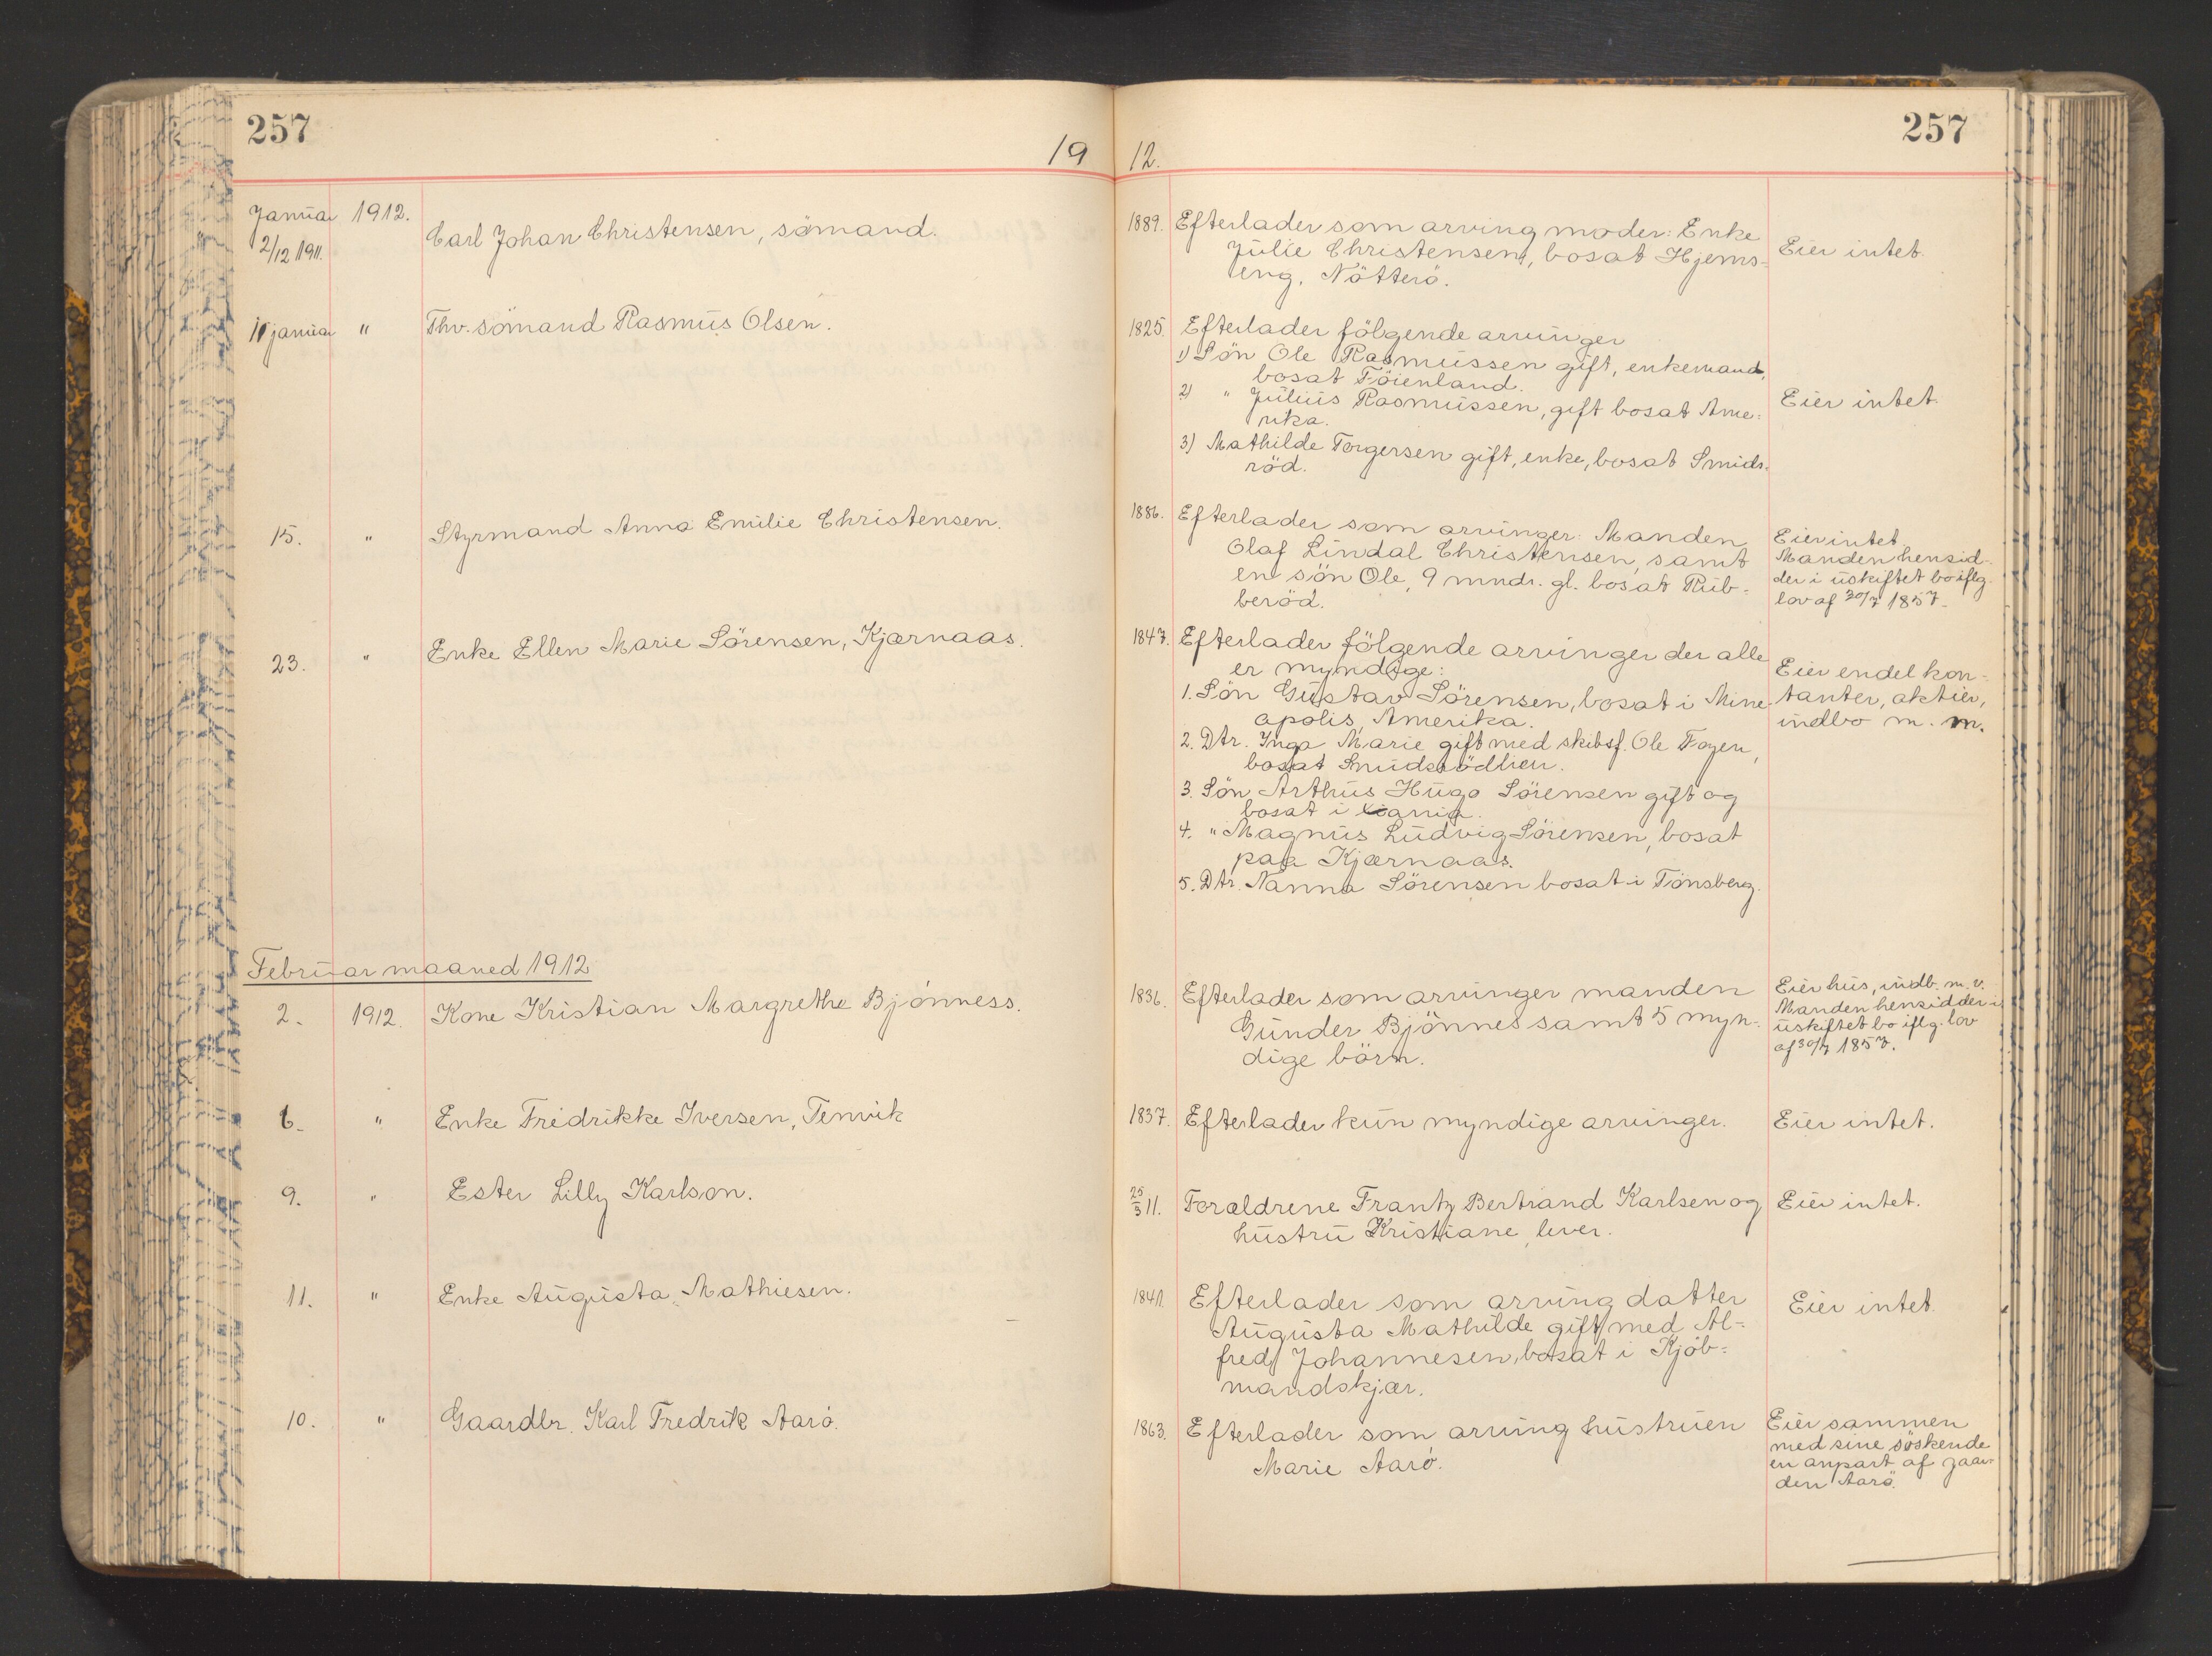 257
257
19 12.
Januar 1912.
2/12 1911.
Carl Johan Christensen, sömand.
1889. Efterlader som arving moder: Enke
Julie Christensen, bosat Hjems-
eng, Nötterö.
Eier intet.
januar " Thv. sömand Rasmus Olsen.
1825. Efterlader fölgende arvinger
1) Sön Ole Rasmussen gift, enkemand,
bosat Föienland.
2) " Julius Rasmussen, gift bosat Ame-
rika.
3) Mathilde Torgersen gift, enke, bosat Smids-
röd.
Eier intet.
15. " Styrmand Anna Emilie Christensen.
1886. Efterlader som arvinger: Manden
Olaf Lindal Christensen, samt
en sön Ole, 9 mndr. gl. bosat Rub-
beröd.
Eier intet.
Manden hensid-
der i uskiftet bo iflg.
lov af 30/7 1857.
23. " Enke Ellen Marie Sörensen, Kjærnaas.
1847. Efterlader fölgende arvinger der alle
er myndige:
1. Sön Gustav Sörensen, bosat i Mine-
apolis, Amerika.
2. Dtr. Inga Marie gift med skibsf. Ole Foyen,
bosat Smidsrödlien.
3. Sön Arthus Hugo Sörensen gift og
bosat i Xiania.
4. " Magnus Ludvig Sörensen, bosat
paa Kjærnaas.
5. Dtr. Nanna Sörensen bosat i Tönsberg.
Eier endel kon-
tanter, aktier,
indbo m. m.
Februar maaned 1912
2. 1912. Kone Kristian Margrethe Bjönness.
1836. Efterlader som arvinger manden
Gunder Bjönnes samt 5 myn-
dige börn.
Eier hus, indb. m. v.
Manden hensidder i
uskiftet bo iflg. lov
af 30/7 1857.
6. " Enke Fredrikke Iversen, Tenvik
1837. Efterlader kun myndige arvinger.
Eier intet.
9. " Ester Lilly Karlson.
25/3 11. Foræeldrene Frantz Bertrand Karlsen og
hustru Kristiane, lever.
Eier intet.
11. " Enke Augusta Mathiesen.
1841. Efterlader som arving datter
Augusta Mathilde gift med Al-
fred Johannesen, bosat i Kjöb-
mandskjær.
Eier intet.
10. " Gaardbr. Karl Fredrik Aarö.
1863. Efterlader som arving hustruen
Marie Aarö.
Eier sammen
med sine söskende
en anpart af gaar-
den Aarö.